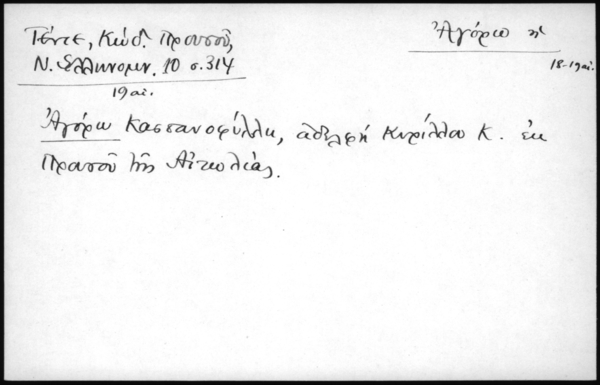 Γέντε, Κώδ. Προυσοῦ,
Ν. Ἑλληνομν. 10 σ. 314
19 αἰ.
Ἀγόρω ἡ
18-19 αἰ.
Ἀγόρω Καστανοφύλλη, ἀδελφή Κυρίλλου Κ. ἐκ
Προυσοῦ τῆς Αἰτωλίας.